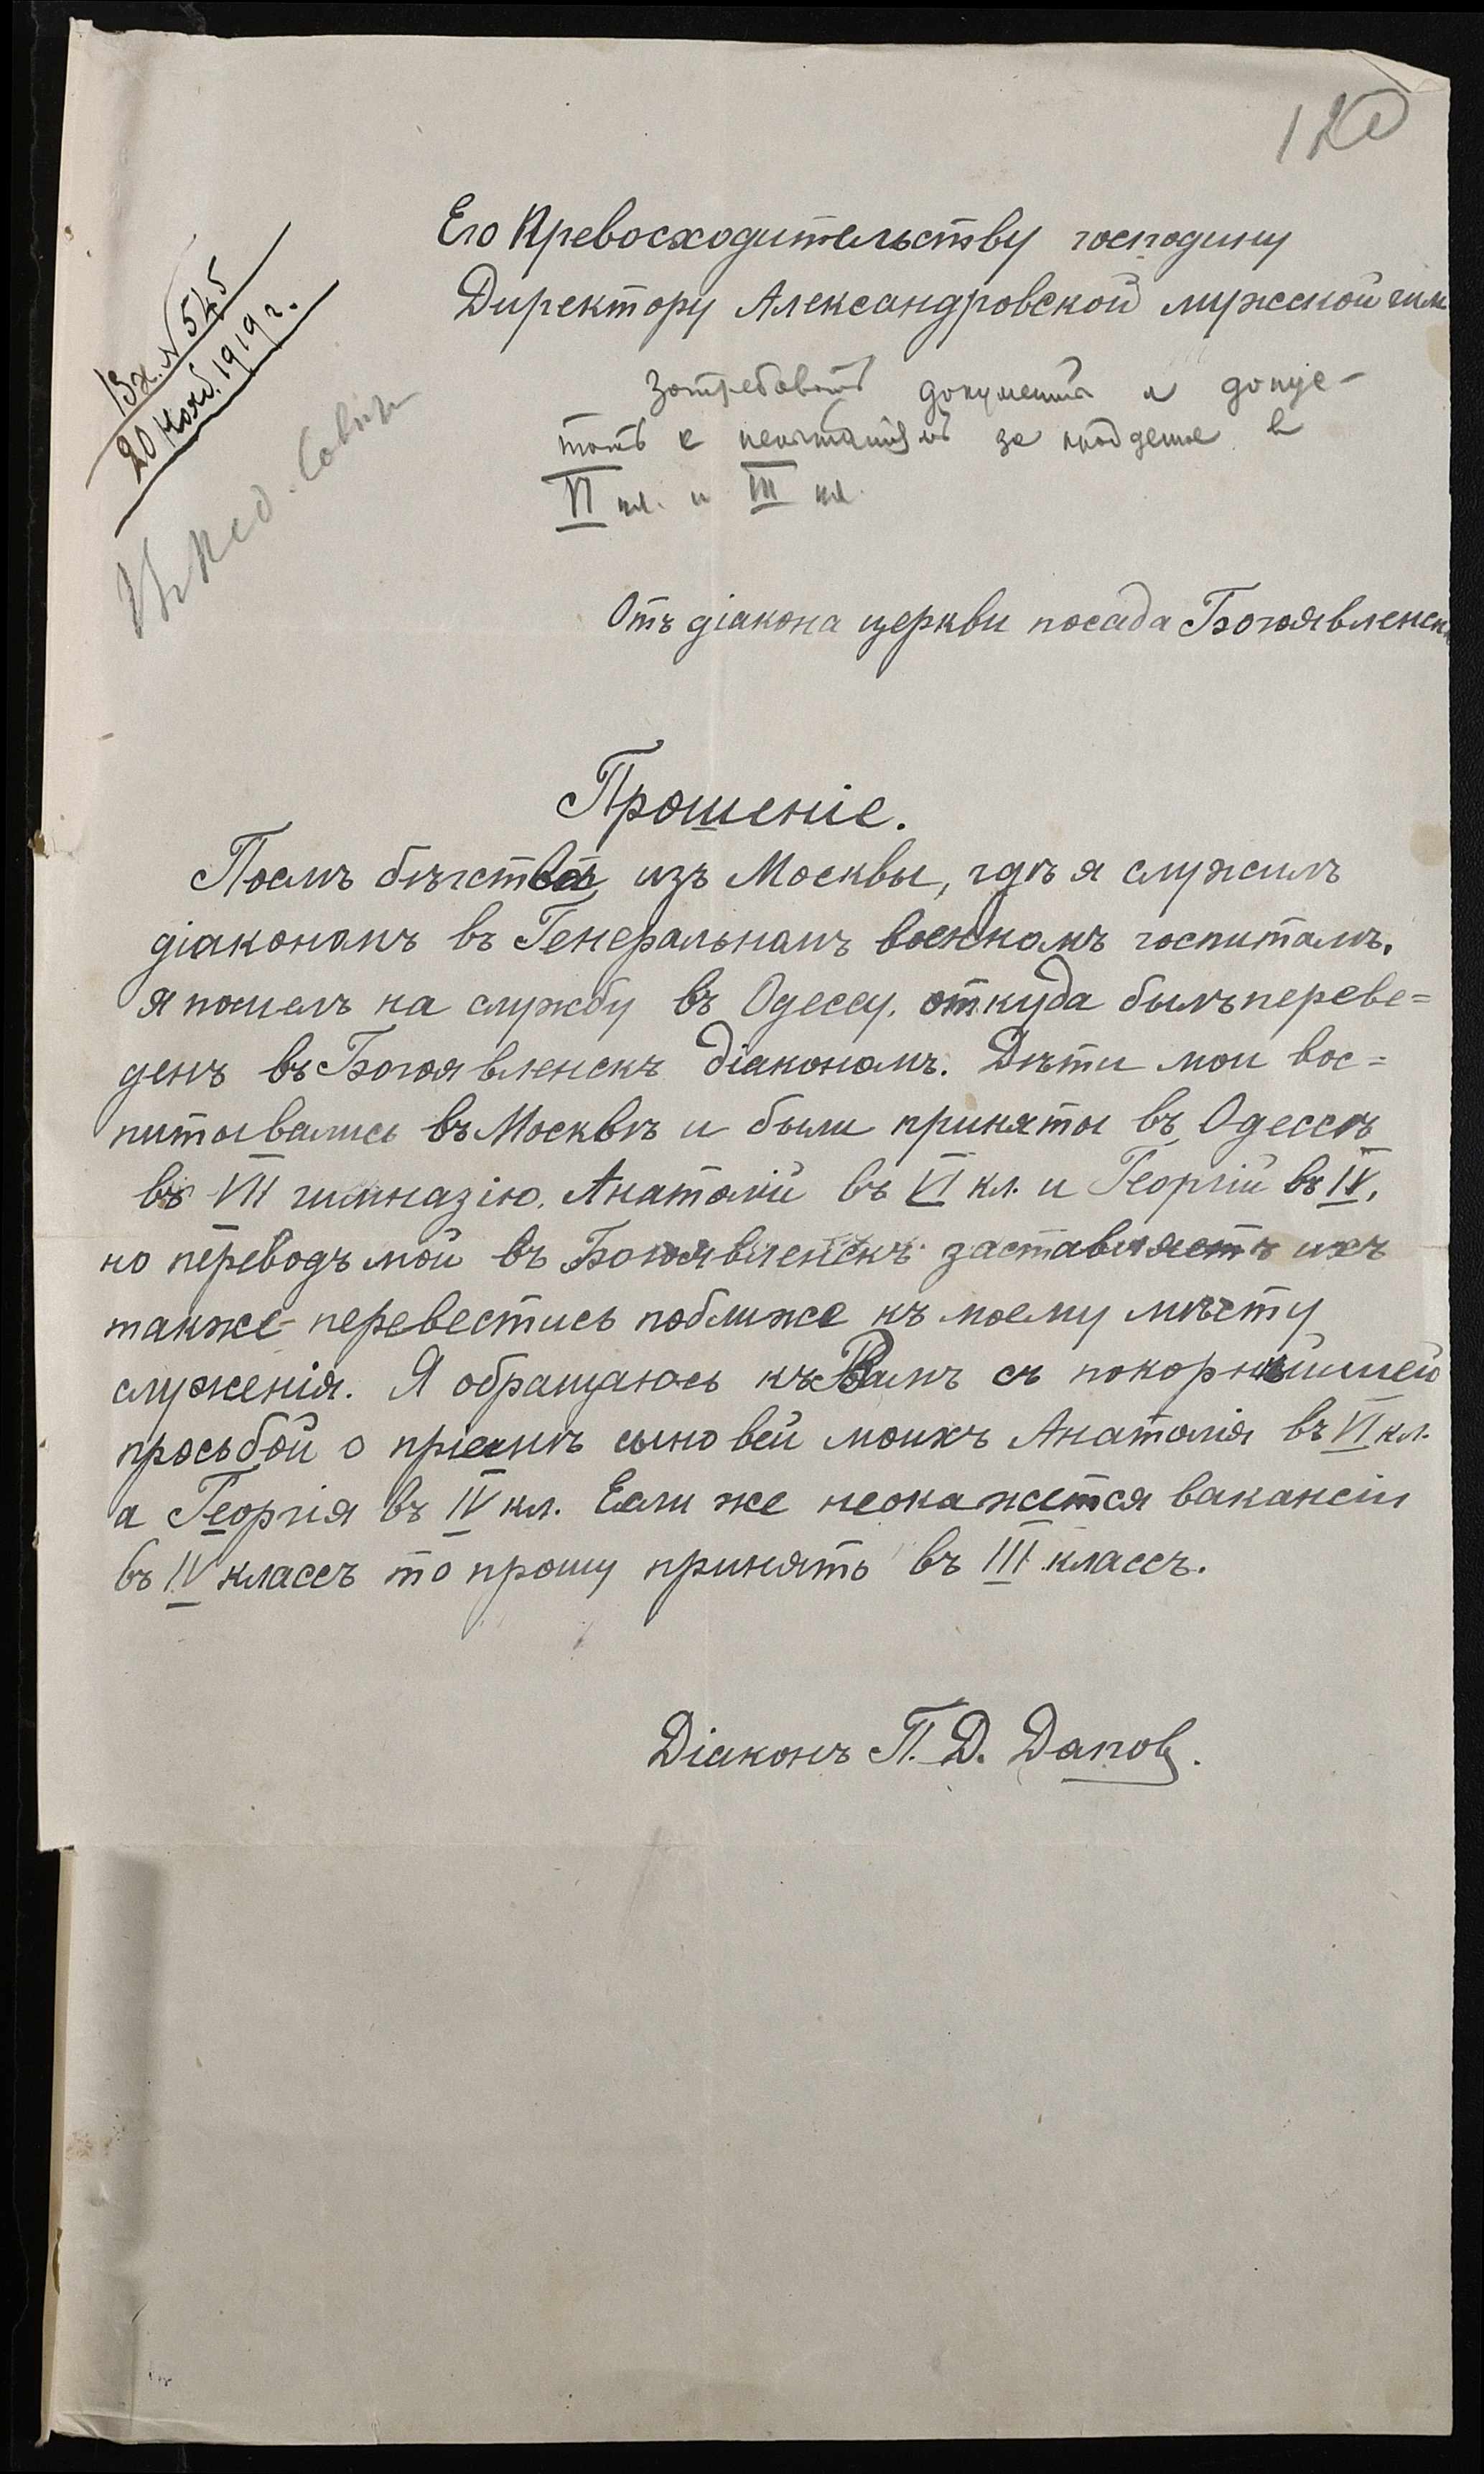 120
Его Превосходительству господину
Директору Александровской мужской гим
Вх. № 545
20 Нояб. 1919 г.
Затребовать документы и допус-
тить к испытаніямъ за в
VI кл. и III кл.
Отъ діакона церкви посада Богоявленск
Прошеніе.
Послѣ бѣгства изъ Москвы, гдѣ я служилъ
діакономъ въ Генеральномъ военномъ госпиталѣ,
я пошелъ на службу въ Одессу, откуда былъ переве=
денъ въ Богоявленскъ діакономъ. Дѣти мои вос=
питывались въ Москвѣ и были приняты въ Одессѣ
въ VII гимназію. Анатолій въ VI кл. и Георгій въ IV,
но переводъ мой въ Богоявленскъ заставляетъ ихъ
также перевестись поближе къ моему мѣсту
служенія. Я обращаюсь къ Вамъ съ покорнѣйшей
просьбой о пріемѣ сыновей моихъ Анатолія въ VI кл.
а Георгія въ IV кл. Если же неокажется вакансіи
въ IV классъ то прошу принять въ III классъ.
Діаконъ П. Д. Дапов.